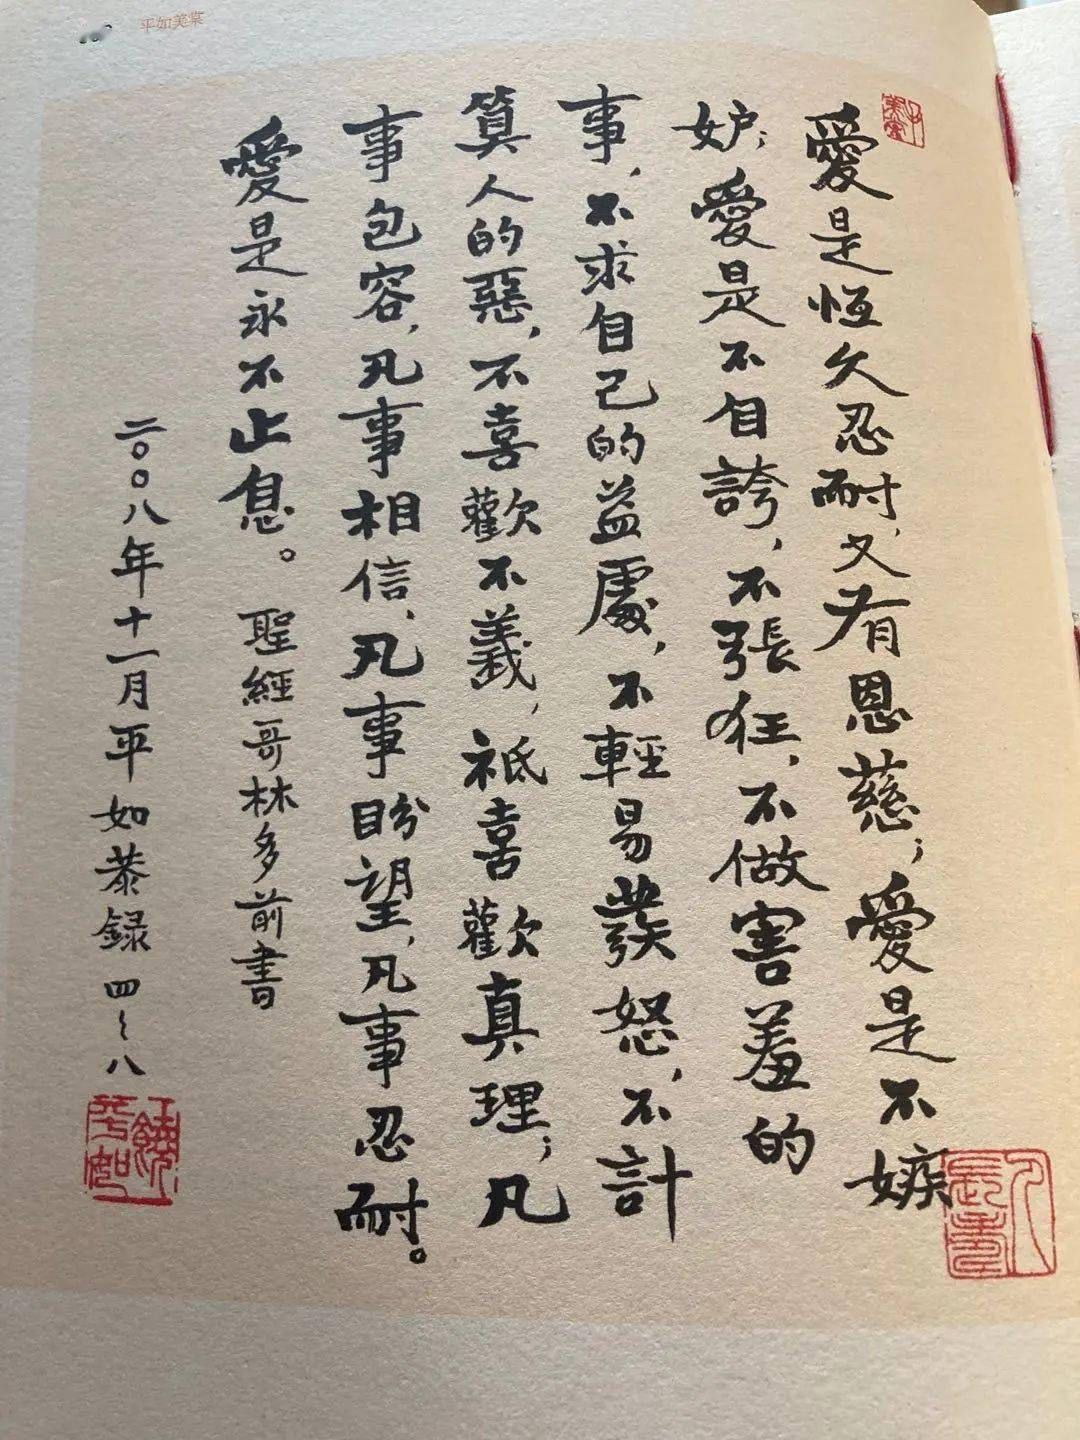 平如美棠
愛是恆久忍耐，又有恩慈；愛是不嫉
妒；愛是不自誇，不張狂，不做害羞的
事，不求自己的益處，不輕易發怒，不計
算人的惡，不喜歡不義，祇喜歡真理；凡
事包容，凡事相信，凡事盼望，凡事忍耐。
愛是永不止息。 聖經哥林多前書
二〇〇八年十一月平如恭録 四～八
饒平如
人長壽